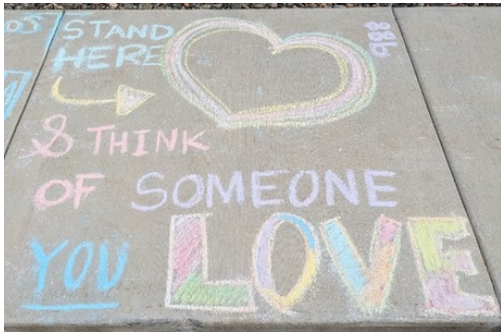 STAND
HERE
988
& THINK
OF SOMEONE
YOU LOVE